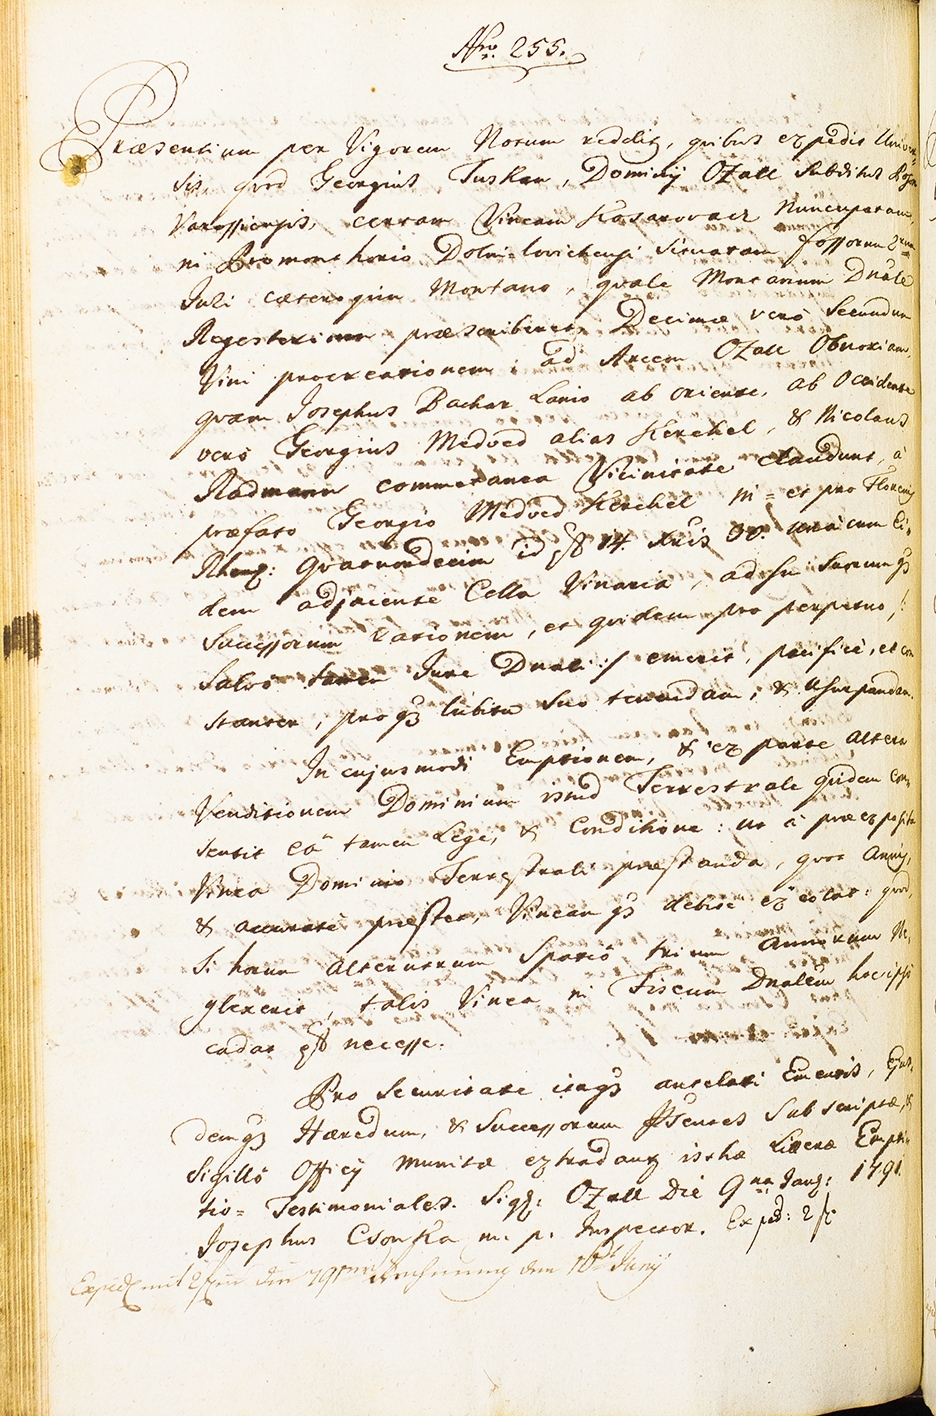 Nro. 255.
Præsentium per Vigorem Notum redditz, quibus expedit Univer=
sis, quod Georgius Tuskan, Dominij Ozall Subditus
Varossiensis, certam Vineam Kosarovacz Nuncupatam,
in Promonthorio Dolni-lovichensi Situatam fossorum 2rum
Juri cæteroquin Montano, quale Montanum Dnale
Regestorium præscriberet, Decimæ verò Secundum
Vini procreationem ad Arcem Ozall Obnoxiam,
quam Josephus Bachar Lanio ab oriente, ab Occidente
vero Georgius Medved alias Kerchel, & Nicolaus
Radmann commetanea Vicinitate claudunt, à
præfato Georgio Medved Kerchel in= et pro Florenis
Rhenz: Quatuordecim id est 14. Xris 00. unà cum Ei=
dem adjacente Cella Vinaria, ad sui Suorumqz
Successorum rationem, et quidem pro perpetuo /:
Salvo tamen Jure Dnali :/ emerit, pacifice, et con
stanter, proqz lubitu Suo tenendam, & Usurpandam.
In cujusmodi Emptionem, & ex parte altera
Venditionem Dominium istud Terrestrale quidem con,
sensit eâ tamen Lege, & Conditione: ut à præexposita
Vinea Dominio Terrestrali præstanda, quot Annis,
& accurate præstet, Vineamqz debite excolat: quod,
Si horum alterutrum Spatio trium Annorum Ne,
glexerit, talis Vinea in Fiscum Dnalem hocipso
cadat est necesse.
Pro Securitate itaqz antelati Emptoris, Ejus,
demqz Hæredum, & Successorum Præsentes Subscriptæ, &
Sigillo Officij munitæ extradantz isthæ Literæ Empti=
tio= Testimoniales. Sigz: Ozall Die 9na Janz: 1791.
Josephus Csonka m. p. Inspector. Exped: 2 f
Expedz mit 2 f in der 791mer Rechnung den 16t Junij